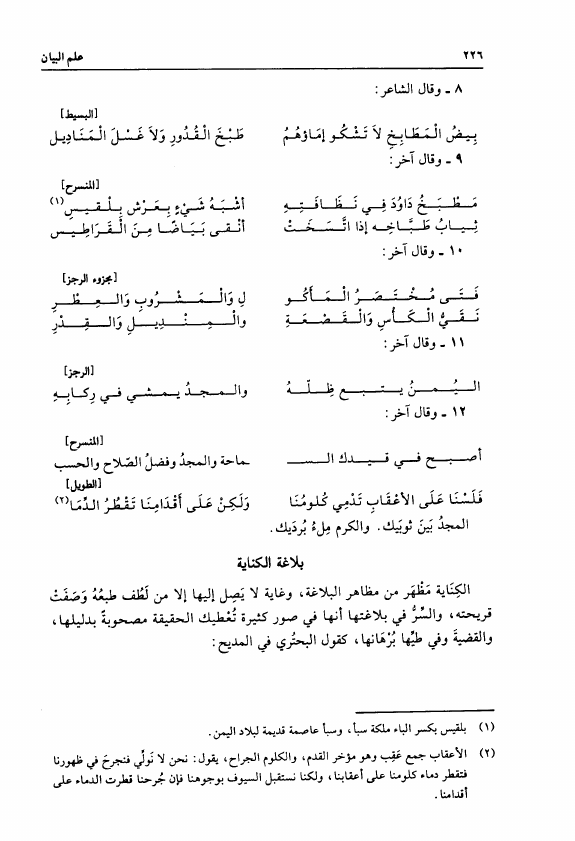 ٢٢٦ علم البيان
٨ ـ وقال الشاعر:
[البسيط]
بِيضُ الْمَطَابِخِ لاَ تَشْكُو إمَاؤهُمُ طَبْخَ الْقُدُورِ وَلاَ غَسْلَ الْمَنَادِيلِ
٩ ـ وقال آخر:
[المنسرح]
مَطْبَخُ دَاوُدَ فِي نَظَافَتِهِ أشْبَهُ شَيْءٍ بِعَرْشِ بِلْقِيسِ(١)
ثِيابُ طَبَّاخِهِ إذا اتَّسَخَتْ أنْقَى بَيَاضًا مِنَ الْقَرَاطِيسِ
١٠ ـ وقال آخر:
[مجزوء الرجز]
فَتَى مُخْتَصَرُ الْمَأكُو لِ وَالْمَشْرُوبِ وَالعِطْرِ
نَقِيُّ الْكَأسِ وَالْقَصْعَةِ والْمِنْدِيلِ وَالْقِدْرِ
١١ ـ وقال آخر:
[الرجز]
اليُمْنُ يتبع ظِلَّهُ والمجدُ يمشي في رِكابِهِ
١٢ ـ وقال آخر:
[المنسرح]
أصبح في قيدك الســ ـماحة والمجدُ وفضلُ الصّلاح والحسب
[الطويل]
فَلَسْنَا عَلَى الأعْقَابِ تَدْمِي كُلومُنَا وَلَكِنْ عَلَى أقْدَامِنَا تَقْطُرُ الدِّمَا(٢)
المجدُ بَينَ ثوبَيك. والكرم مِلءُ بُردَيك.
بلاغة الكناية
الكِنَاية مَظْهَر من مظاهر البلاغة، وغاية لا يَصِل إليها إلا من لَطُف طبعُهُ وَصَفَتْ
قريحته، والسِّرُّ في بلاغتها أنها في صور كثيرة تُعْطيك الحقيقة مصحوبةً بدليلها،
والقضيةَ وفي طيِّها بُرْهَانها، كقول البحتُري في المديح:
(١) بلقيس بكسر الباء ملكة سبأ، وسبأ عاصمة قديمة لبلاد اليمن.
(٢) الأعقاب جمع عَقِب وهو مؤخر القدم، والكلوم الجراح، يقول: نحن لا نَولِّي فنجرحَ في ظهورنا
فتقطر دماء كلومنا على أعقابنا، ولكنا نستقبل السيوف بوجوهنا فإن جُرحنا قطرت الدماء على
أقدامنا.